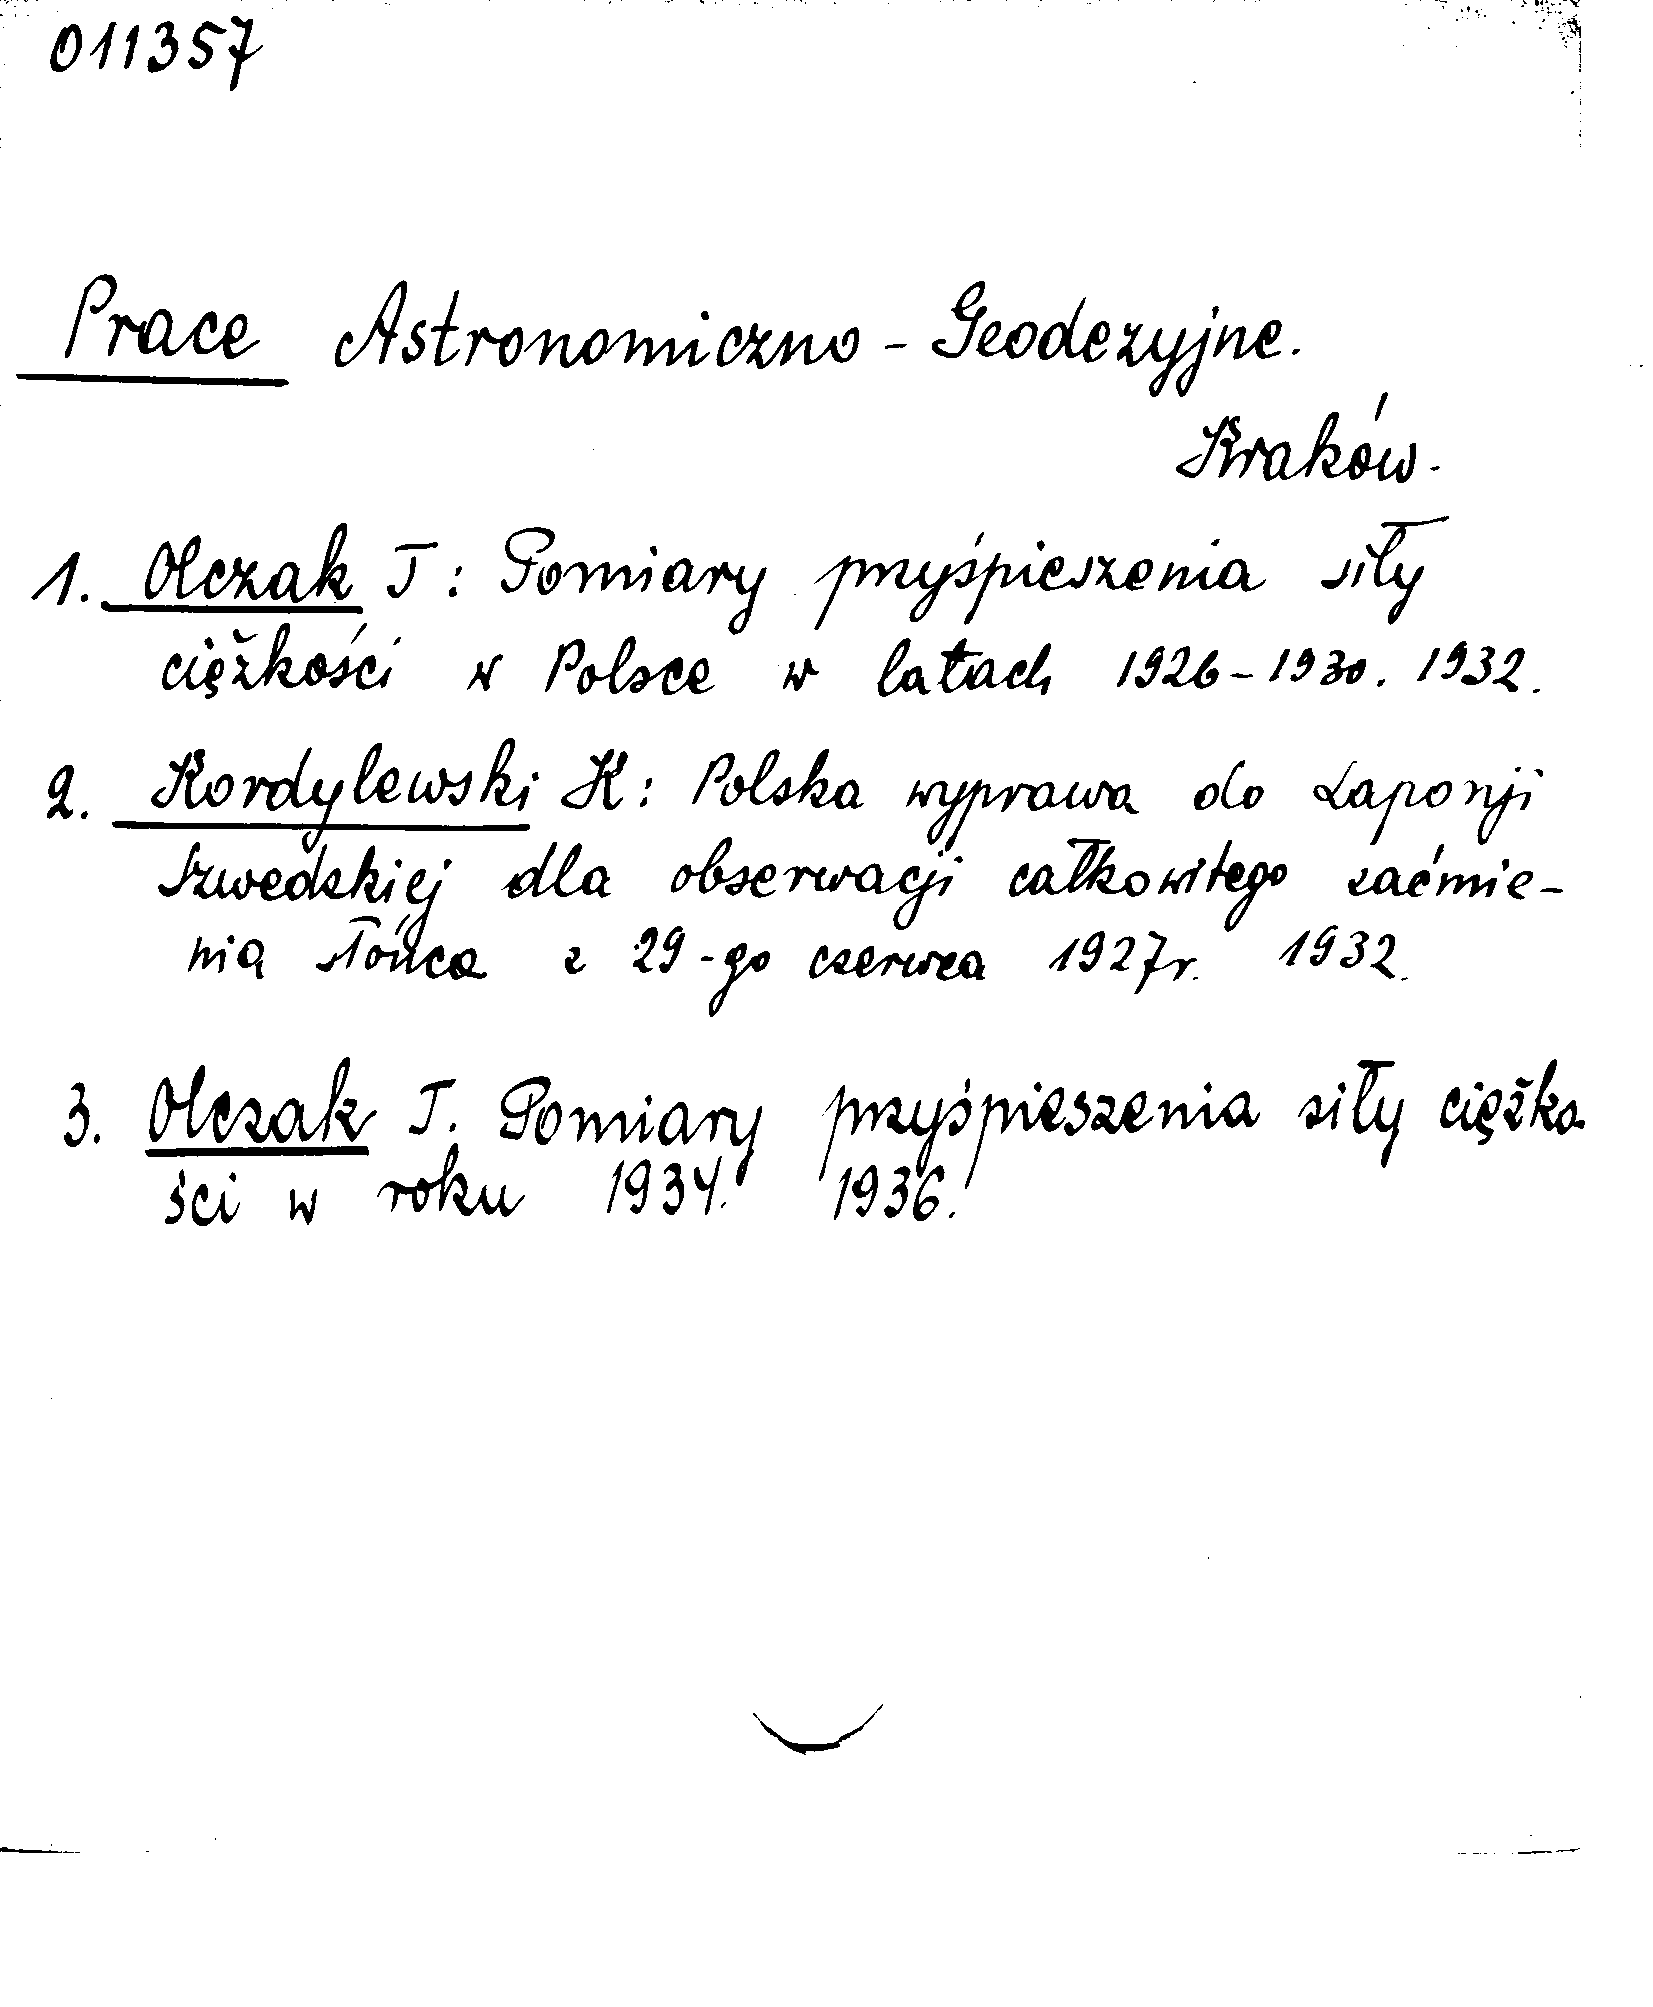 011357
Prace Astronomiczno - Geodezyjne.
Kraków.
1. Olczak T: Pomiary przyśpieszenia siły
ciężkości w Polsce w latach 1926-1930. 1932.
2. Kordylewski K: Polska wyprawa do Laponji
Szwedzkiej dla obserwacji całkowitego zaćmie-
nia słońca z 29-go czerwca 1927r. 1932.
3. Olczak T. Pomiary przyśpieszenia siły ciężko
ści w roku 1934. 1936.